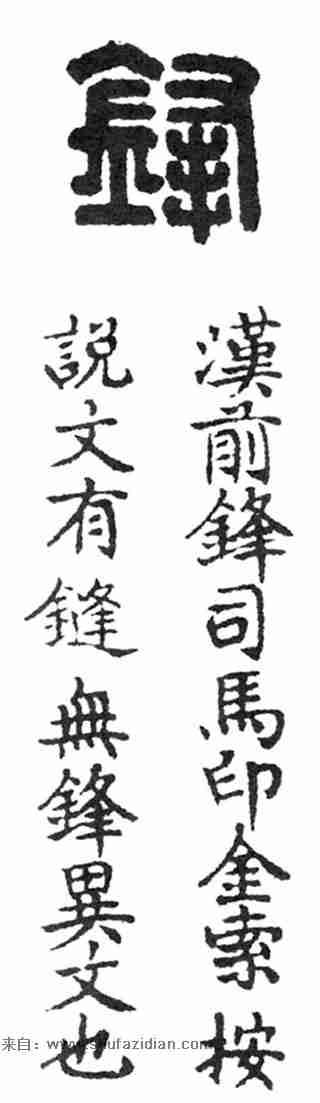 鋒
漢前鋒司馬印金索按
說文有鏠無鋒異文也
来自：www.shufazidian.com